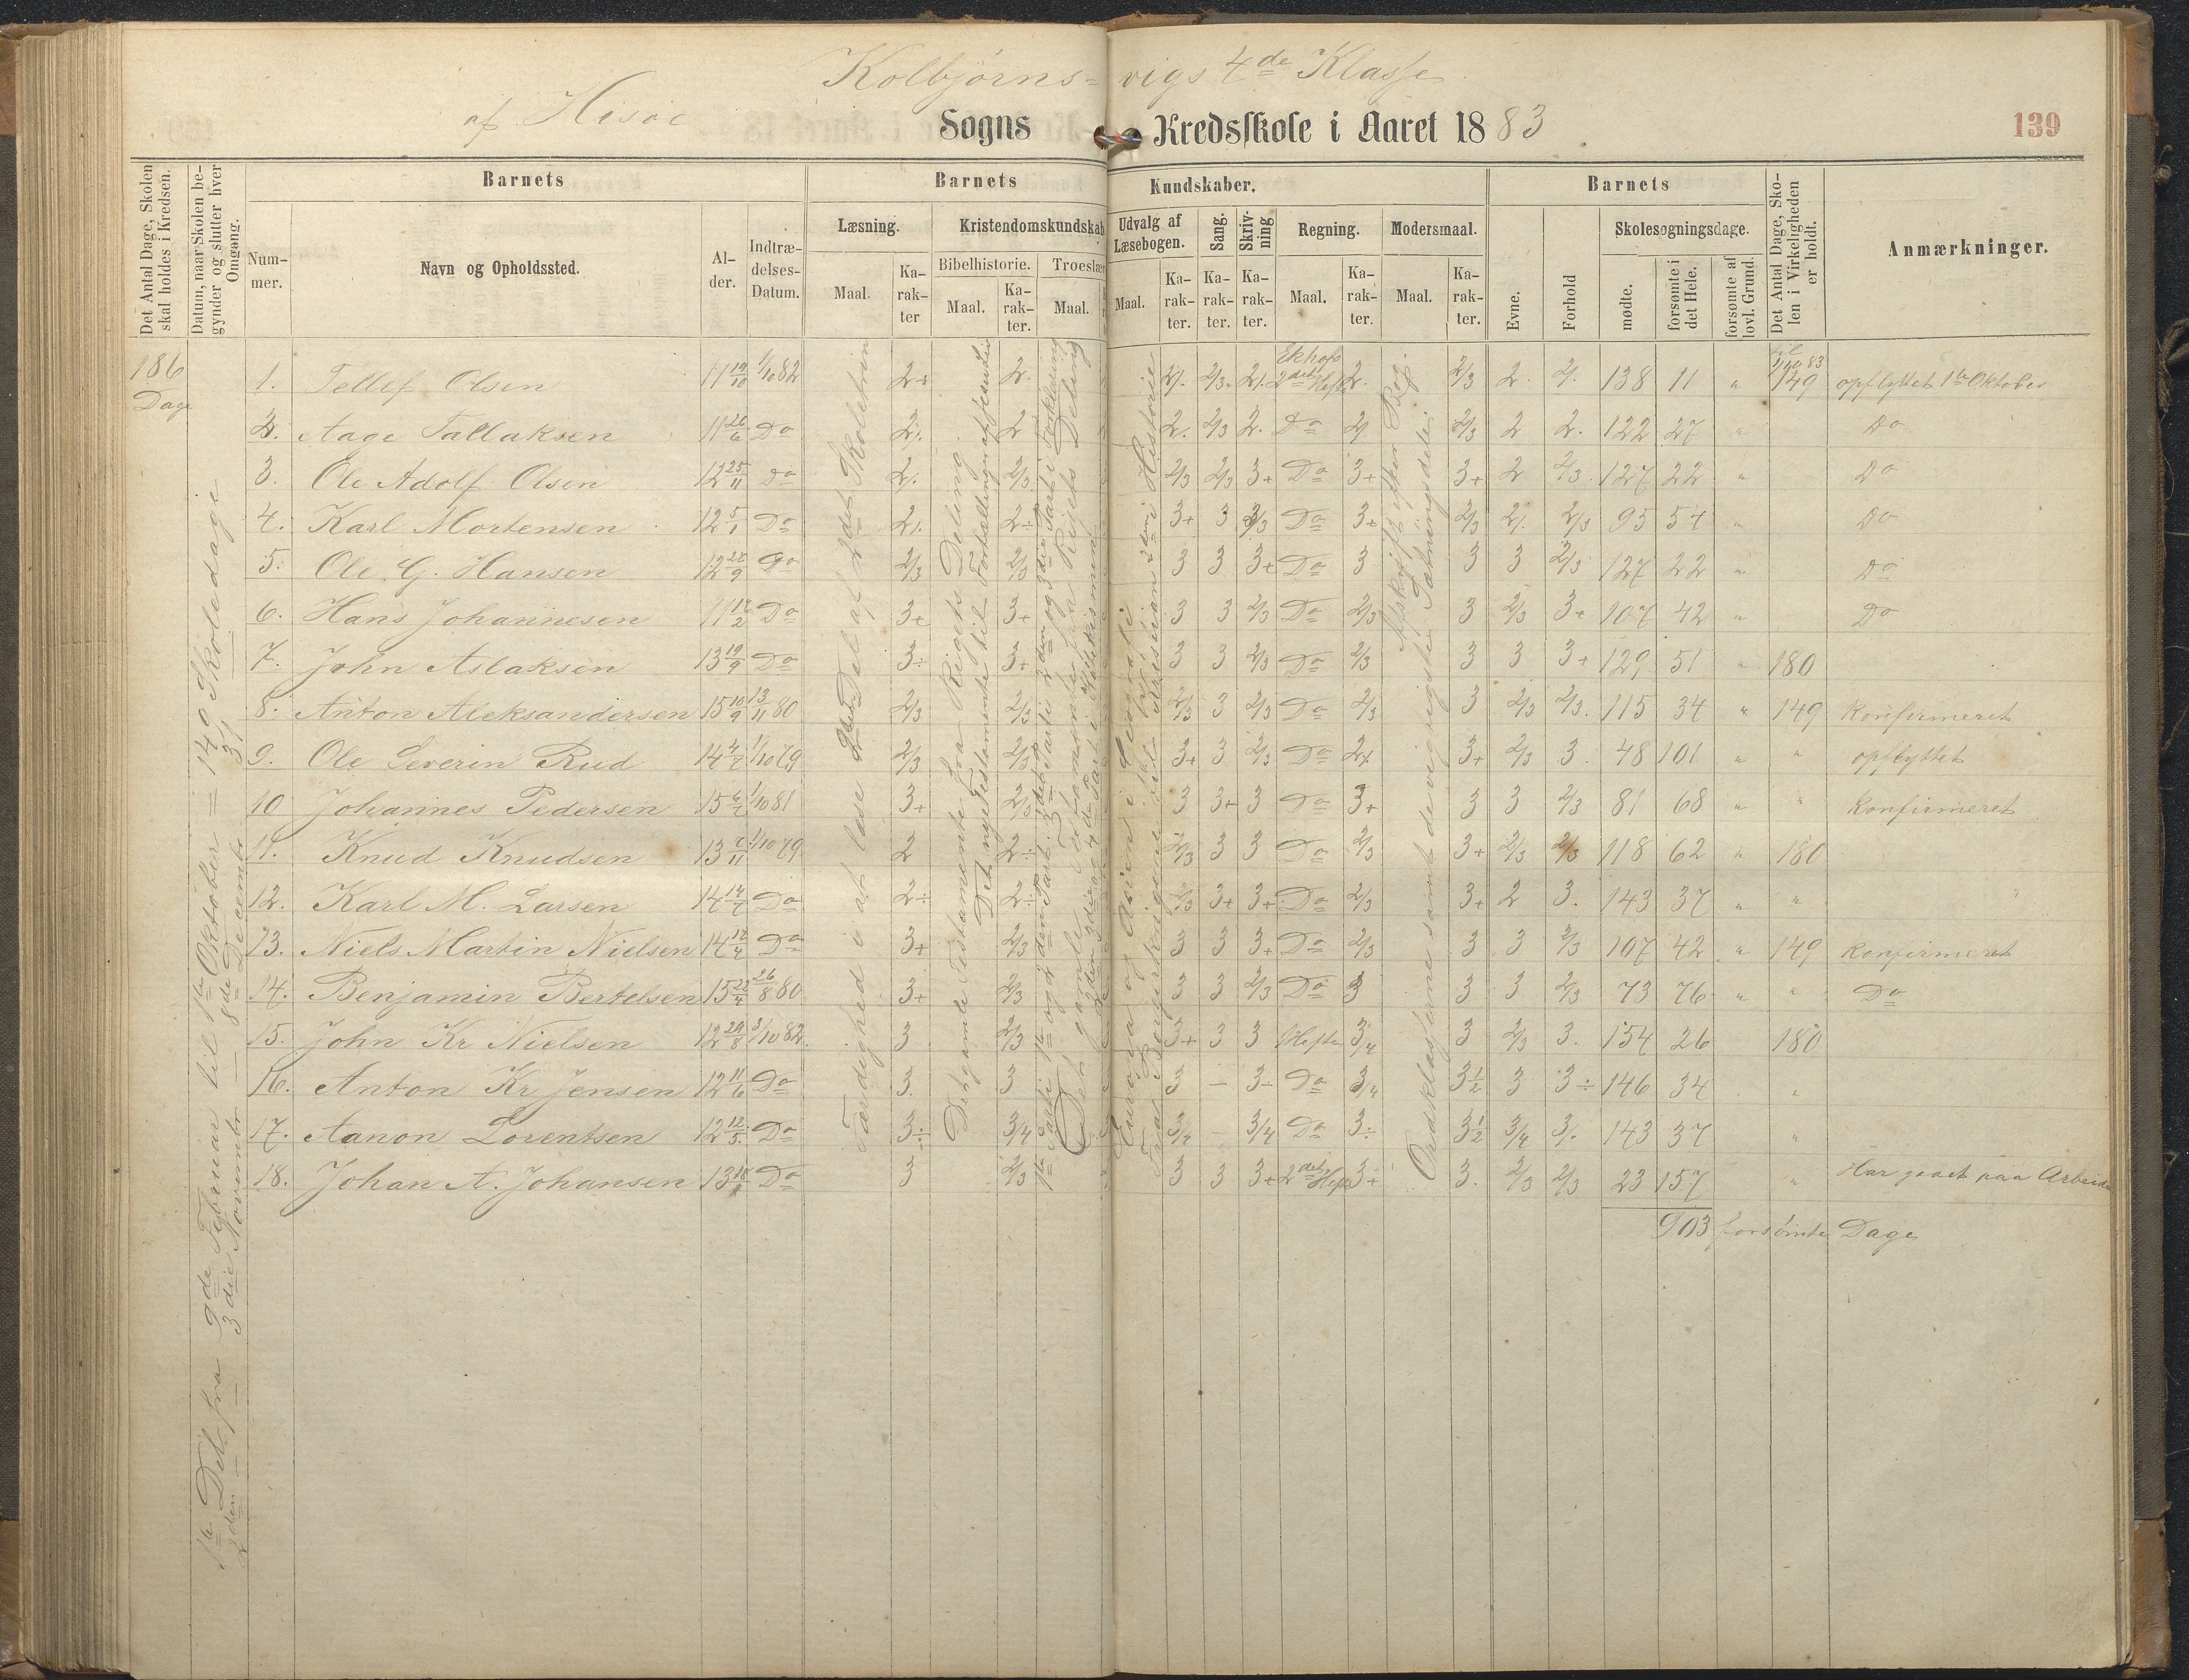 Kolbjørns= vigs 4de Klasse
af Hisøe Sogns Kredsskole i Aaret 1883
139
Det Antal Dage, Skolen skal holdes i Kredsen.
Datum, naar Skolen begynder og slutter hver Omgang.
Barnets
Barnets
Kundskaber.
Barnets
Nummer.
Navn og Opholdssted.
Alder.
Indtrædelses-Datum.
Læsning.
Kristendomskundskab
Udvalg af Læsebogen.
Sang.
Skrivning
Regning.
Modersmaal.
Evne.
Forhold
Skolesøgningsdage.
Det Antal Dage, Skolen i Virkeligheden er holdt.
Anmærkninger.
Bibelhistorie.
Troeslær
Maal.
Karakter
Maal.
Karakter.
Maal.
Maal.
Karakter.
Karakter.
Karakter.
Maal.
Karakter.
Maal.
Karakter.
mødte.
forsømte i det Hele.
forsømte af lovl. Grund.
186 Dage
1ste Del fra 9de Februar til 1ste Oktober = 149 Skoledage
2den — 3die Novembr — 8de Decembr 31
Færdighed i at læse 2det Del af 2det Skoletrin
Det gamle Testamente fra Rigets Deling.
Det nye Testamente til Fortællinger af Jesu Liv
Det gamle Testamente fra Rigets Deling
Europa og Asien i Geografi
Fra Borgerkrigene til Kristian 2den i Historie
Afskrift efter Bog.
Ordklasserne samt de vigtigste Sætningsdele
1. Tellef Olsen 11 19/10 1/10 82 2÷ 2. 2/. 2/3. 2/. Ekhofs 2det Hefte 2. 2/3 2. 2/. 138 11 " til 1/10 83 149 opflyttet 1ste Oktober
2. Aage Tallaksen 11 26/6 Do 2/. 2 2. 2/3 2. Do 2/. 2/3 2 2. 122 27 " Do
3. Ole Adolf Olsen 12 25/11 Do 2/. 2/3 2/3 2/3 3+ Do 3+ 3+ 2 2/3. 127 22 " Do
4. Karl Mortensen 12 5/1 Do 2/. 2÷ 3+ 3 2/3 Do 3+ 2/3 2/. 2/3 95 54 " Do
5. Ole G. Hansen 12 28/9 Do 2/3 2/3 3 3 3+ Do 3 3 3 2/3 127 22 " Do
6. Hans Johannesen 11 17/2 Do 3+ 3+ 3 3 2/3 Do 2/3 3 2/3 3+ 107 42 " Do
7. John Aslaksen 13 19/9 Do 3÷ 3+ 3 3 2/3 Do 2/3 3 3 3+ 129 51 " 180
8. Anton Aleksandersen 15 10/9 13/11 80 2/3 2/3 2/3 3 2/3 Do 2/3 3 2/3 2/3. 115 34 " 149 Konfirmeret
9. Ole Severin Rud 14 4/7 1/10 79 2/3 2/3 3+ 3 2/3 Do 2/. 3+ 2/3 3. 48 101 " " opflyttet
10 Johannes Pedersen 15 6/7 1/10 81 3+ 2/3 3 3+ 3 Do 3+ 3 3 2/3 81 68 " " Konfirmeret
11. Knud Knudsen 13 7/11 1/10 79 2 2÷ 2/3 3 3 Do 2/3 3+ 2/3 2/3 118 62 " 180
12. Karl M. Larsen 14 14/7 Do 2÷ 2÷ 2/3 3+ 3+ Do 2/3 3+ 2 3. 143 37 " "
13. Niels Martin Nielsen 14 17/4 Do 3+ 2/3 3 3 3+ Do 2/3 3 3 2/3 107 42 " 149 Konfirmeret
14. Benjamin Bertelsen 15 22/4 26/8 80 3+ 2/3 3 3 2/3 Do 3 3 3 2/3 73 76 " " Do
15. John Kr Nielsen 12 29/8 3/10 82. 3 2/3 3+ 3 3 1 Hefte 3/4 3 2/3 3. 154 26 180
16. Anton Kr Jensen 12 11/6 Do 3. 3 3 — 3÷ Do 3/4 3 1/2 3 3÷ 146 34 "
17. Aanon Lorentsen 12 12/5 Do 3÷ 3/4 3/4 — 3/4 Do 3÷ 3 1/2 3/4 3/. 143 37 "
18. Johan A. Johansen 13 Do 3 2/3 3 3 3+ 2det Hefte 3+ 3. 2/3 2/3 23 157 " Har gaaet paa Arbeide
903 forsømte Dage